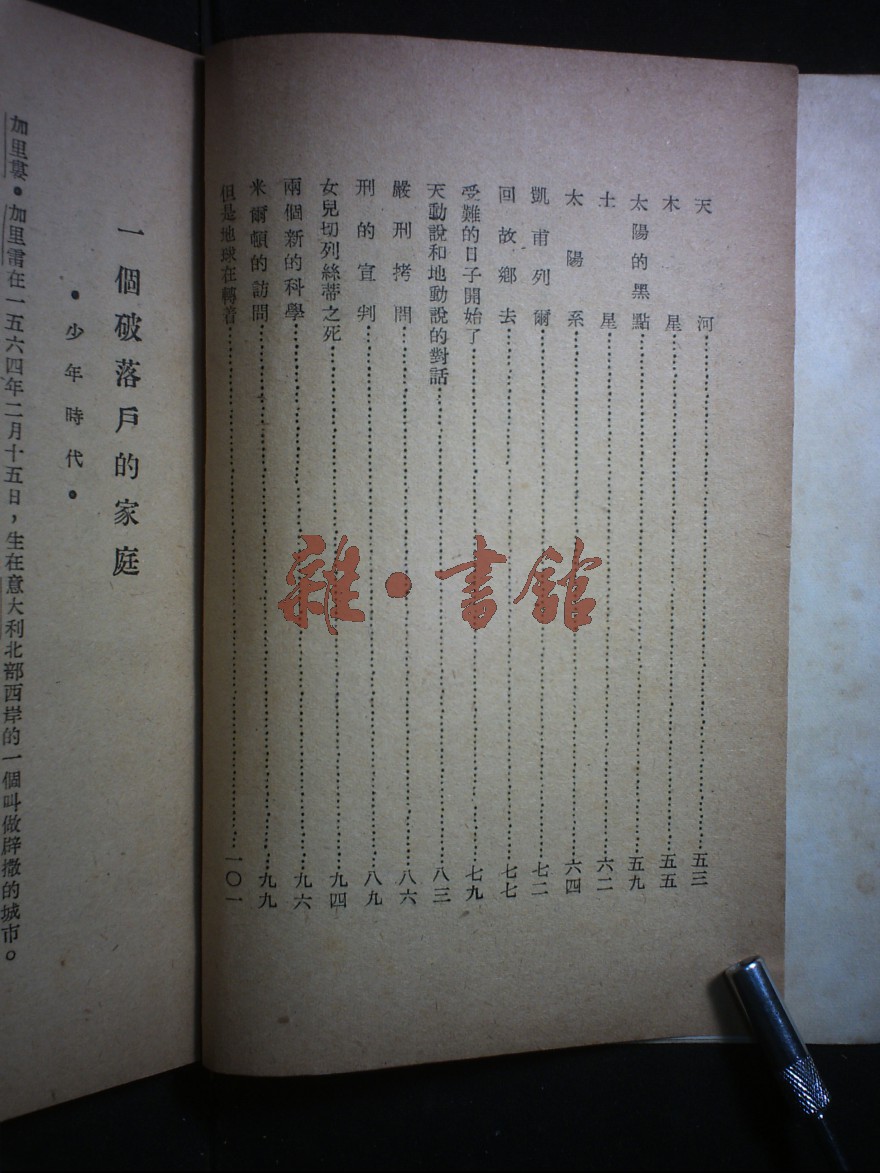 天河……五三
木星……五五
太陽的黑點……五九
土星……六二
太陽系……六四
凱甫列爾……七二
回故鄉去……七七
受難的日子開始了……七九
天動說和地動說的對話……八三
嚴刑拷問……八六
刑的宣判……八九
女兒切列絲蒂之死……九四
兩個新的科學……九六
米爾頓的訪問……九九
但是地球在轉着……一〇一
一個破落戶的家庭
•少年時代•
加里婁•加里雷在一五六四年二月十五日，生在意大利北部西岸的一個叫做辟撒的城市。
雜•書館